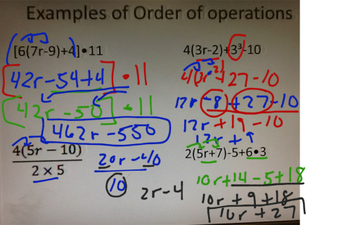 Examples of Order of operations
[6(7r-9)+4]•11
[42r-54+4]•11
[42r-50]•11
462r-550
4(5r – 10)
2 x 5
20r-40
10
2r-4
4(3r-2)+3³-10
+27-10
12r-8+27-10
12r+19-10
12r+9
2(5r+7)-5+6•3
10r+14-5+18
10r+9+18
10r+27